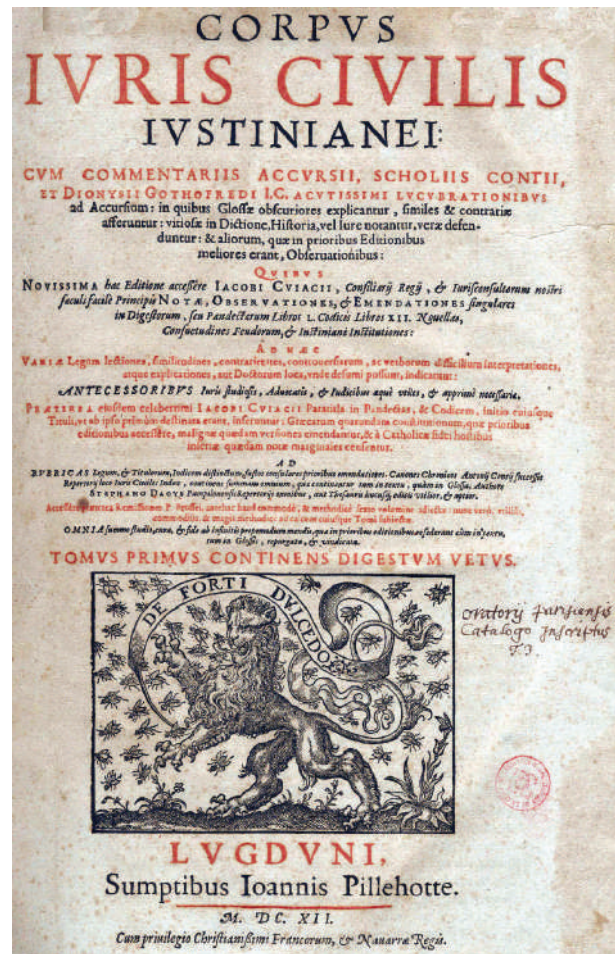 CORPVS
IVRIS CIVILIS
IVSTINIANEI:
CVM COMMENTARIIS ACCVRSII, SCHOLIIS CONTII,
ET DIONYSII GOTHOFREDI I.C. ACVTISSIMI LVCVBRATIONIBVS
ad Accursium: in quibus Glossæ obscuriores explicantur, similes & contrariæ
afferuntur: vitiosæ in Dictione, Historia, vel Iure notantur, veræ defen-
duntur: & aliorum, quæ in prioribus Editionibus
meliores erant, Obseruationibus:
QVIBVS
NOVISSIMA hac Editione accessere IACOBI CVIACII, Consiliarij Regij, & Iurisconsultorum nostri
sæculi facile Principis NOTÆ, OBSERVATIONES, & EMENDATIONES singulares
in Digestorum, seu Pandectarum Libros L. Codicis Libros XII. Nouellas,
Consuetudines Feudorum, & Iustiniani Institutiones:
AD HÆC
VARIÆ Legum lectiones, similitudines, contrarietates, controuersiarum, ac verborum difficilium interpretationes,
atque explicationes, aut Doctorum loca, vnde desumi possunt, indicantur:
ANTECESSORIBVS Iuris studiosis, Aduocatis, & Iudicibus æque vtiles, & apprime necessariæ.
PRÆTEREA eiusdem celeberrimi IACOBI CVIACII Paratitla in Pandectas, & Codicem, initio cuiusque
Tituli, vt ab ipso primùm destinata erant, inseruntur: Græcarum quarundam constitutionum, quæ prioribus
editionibus accessere, malignæ quædam versiones emendantur, & à Catholicæ fidei hostibus
insertæ quædam notæ marginales censentur.
AD
RVBRICAS Legum, & Titulorum, Indicem distinctum, fastos consulares prioribus emendatiores. Canones Chronicos Antonij Contij successit
Repertorij loco Iuris Ciuilis Index, continens summam omnium, quæ continentur tam in textu, quàm in Glossa, Authore
STEPHANO DAOYS Pampilonensi: Repertorijs omnibus, aut Thesauris hucusque editis vtilior, & aptior.
OMNIA summo studio, cura, & fide ab infinitis propemodum mendis, quæ in prioribus editionibus
tum in Glossis, repurgata, & vindicata.
TOMVS PRIMVS CONTINENS DIGESTVM VETVS.
DE FORTI DVLCEDO
oratorij parisiensis
Catalogo Inscriptus
LVGDVNI,
Sumptibus Ioannis Pillehotte.
M. DC. XII.
Cum priuilegio Christianissimi Francorum, & Nauarræ Regis.